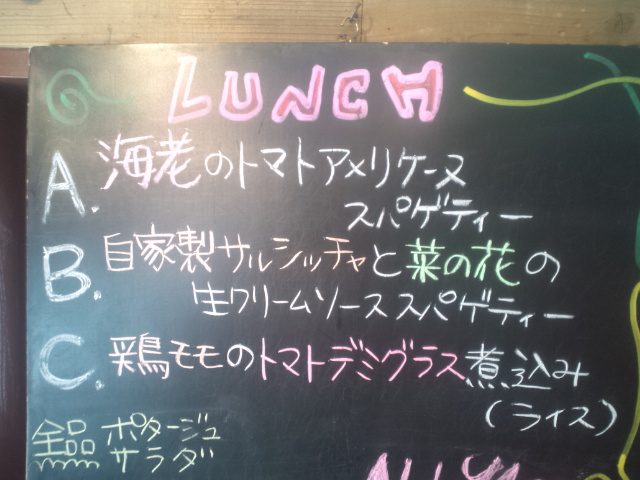 LUNCH
A. 海老のトマトアメリケーヌ
スパゲティー
B. 自家製サルシッチャと菜の花の
生クリームソーススパゲティー
C. 鶏モモのトマトデミグラス煮込み
(ライス)
全品 ポタージュ
サラダ